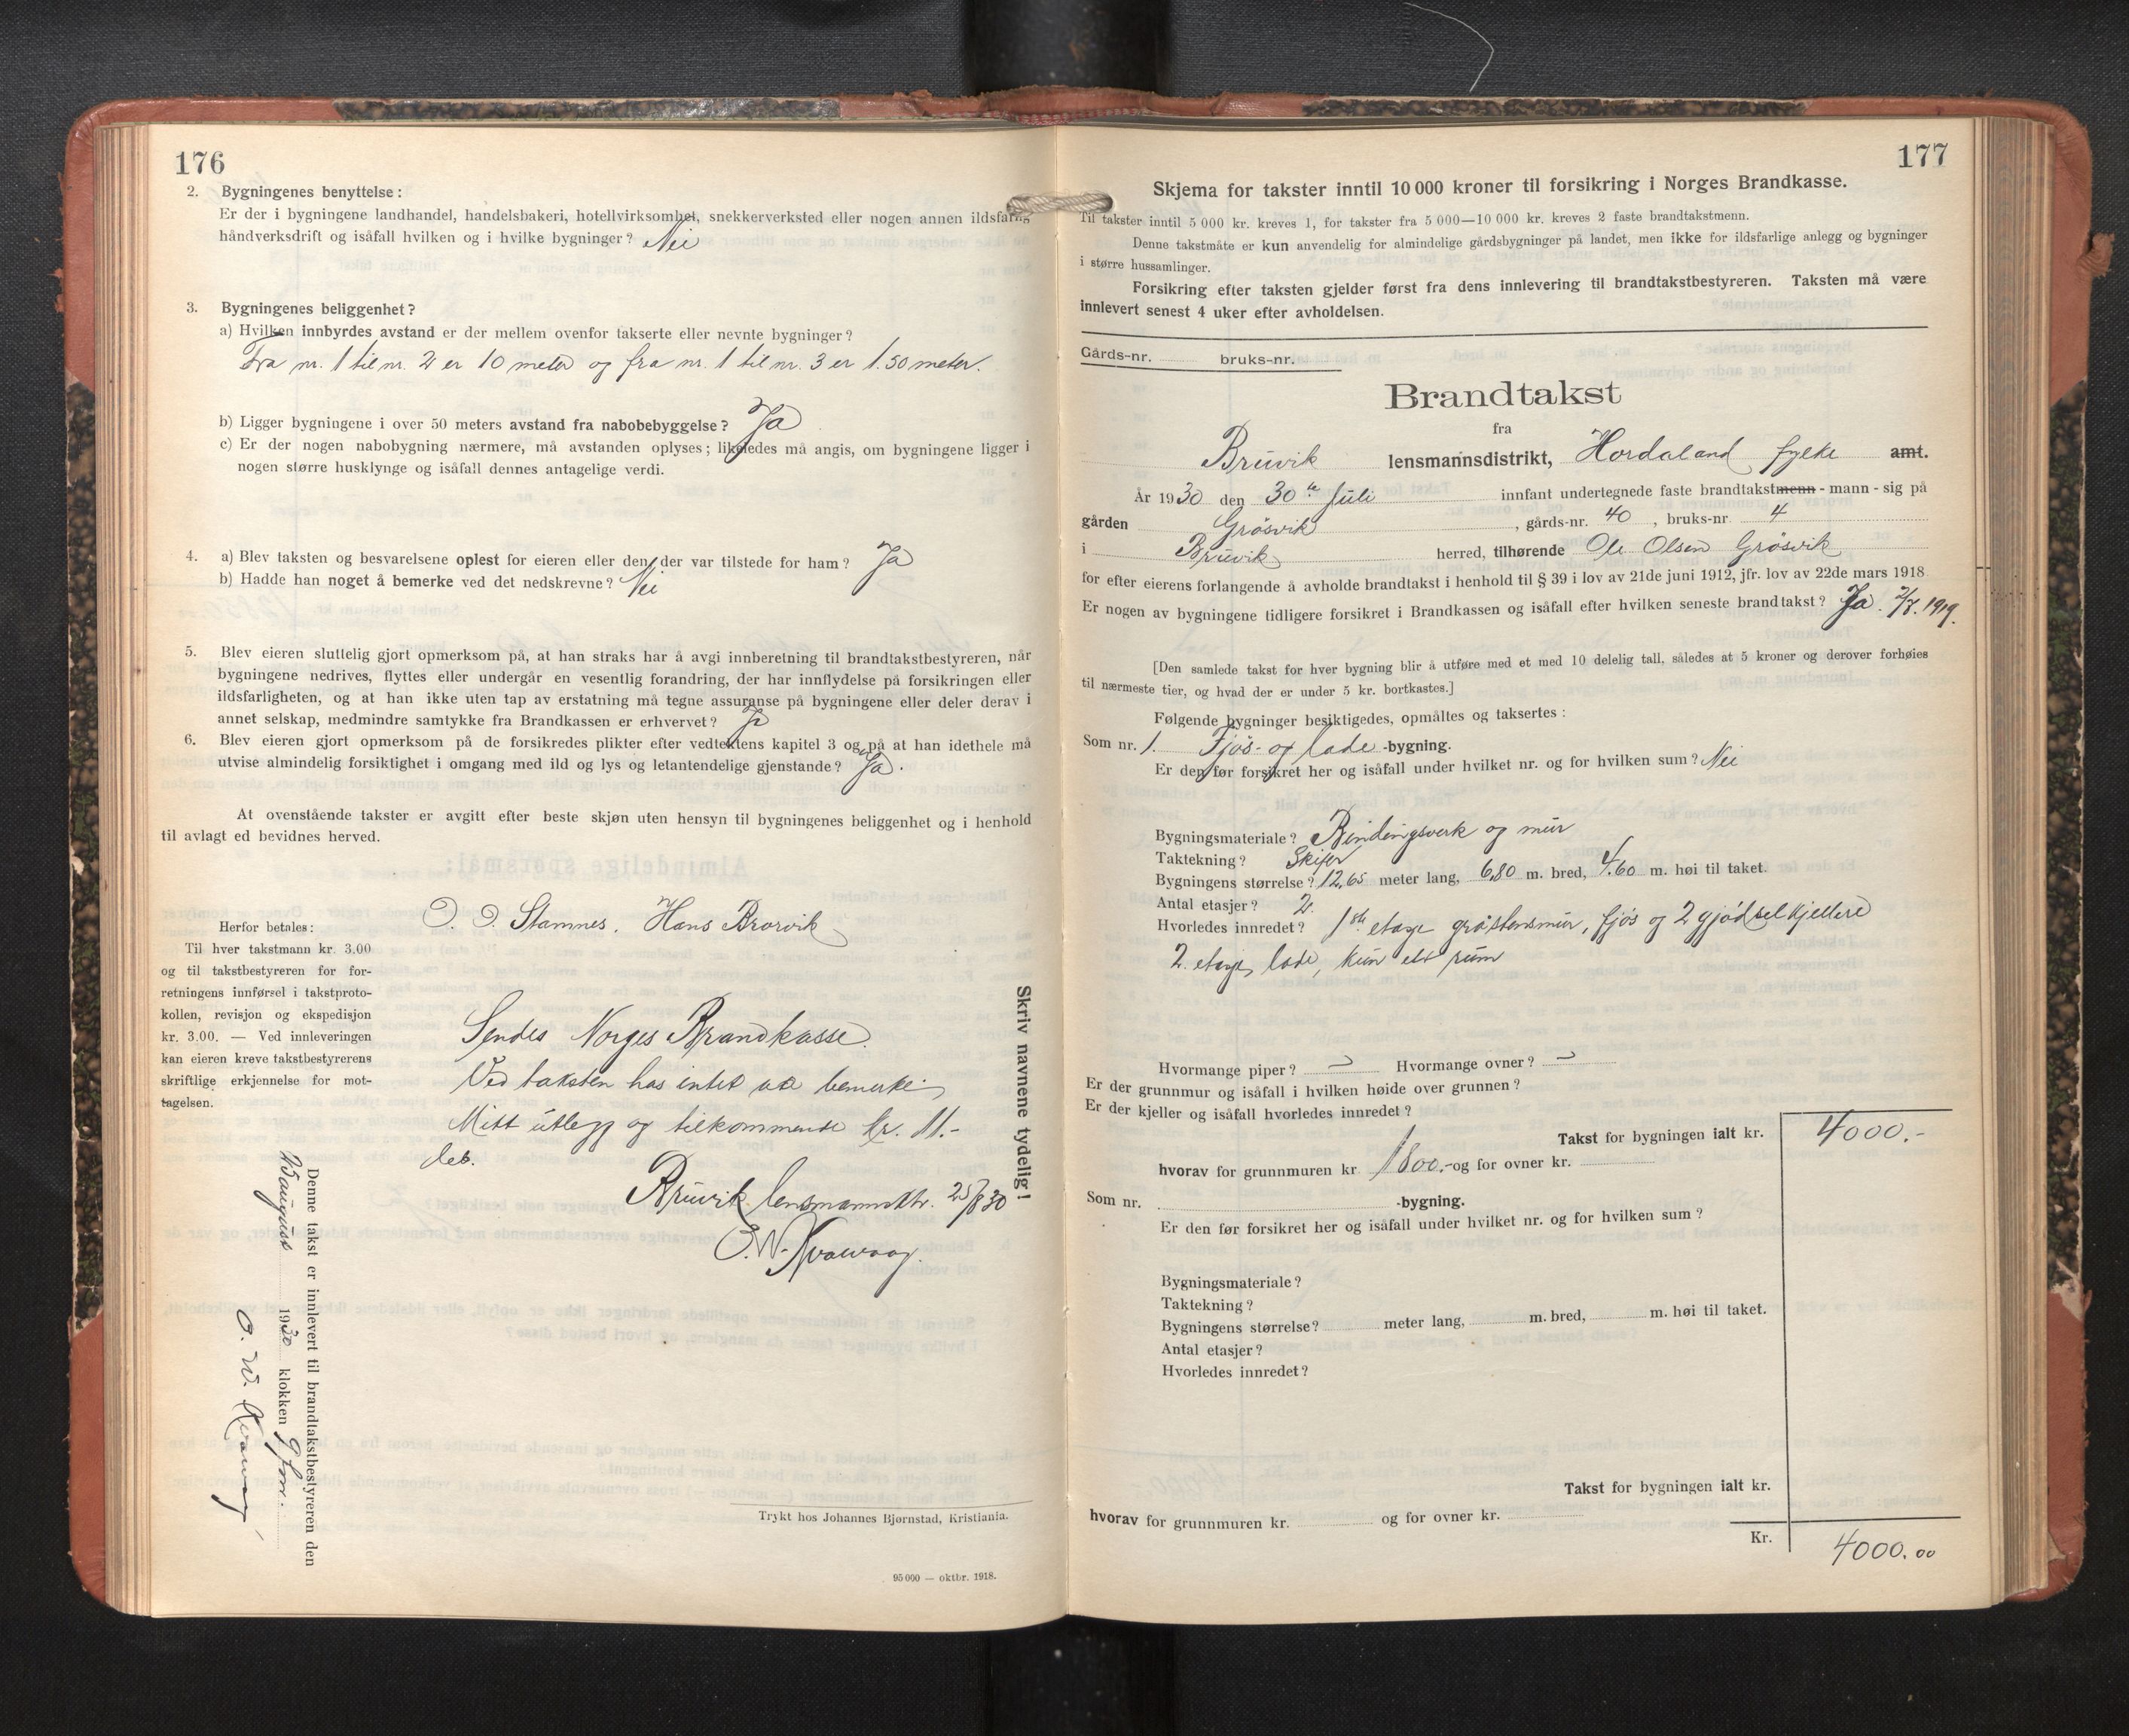 176
2. Bygningenes benyttelse:
Er der i bygningene landhandel, handelsbakeri, hotellvirksomhet, snekkerverksted eller nogen annen ildsfarlig
håndverksdrift og isåfall hvilken og i hvilke bygninger? Nei
3. Bygningenes beliggenhet?
a) Hvilken innbyrdes avstand er der mellem ovenfor takserte eller nevnte bygninger?
Fra nr. 1 til nr. 2 er 10 meter og fra nr. 1 til nr. 3 er 1.50 meter.
b) Ligger bygningene i over 50 meters avstand fra nabobebyggelse? Ja
c) Er der nogen nabobygning nærmere, må avstanden oplyses; likeledes må angis, om bygningene ligger i
nogen større husklynge og isåfall dennes antagelige verdi.
4. a) Blev taksten og besvarelsene oplest for eieren eller den der var tilstede for ham? Ja
b) Hadde han noget å bemerke ved det nedskrevne? Nei
5. Blev eieren sluttelig gjort opmerksom på, at han straks har å avgi innberetning til brandtakstbestyreren, når
bygningene nedrives, flyttes eller undergår en vesentlig forandring, der har innflydelse på forsikringen eller
ildsfarligheten, og at han ikke uten tap av erstatning må tegne assuranse på bygningene eller deler derav i
annet selskap, medmindre samtykke fra Brandkassen er erhvervet? Ja
6. Blev eieren gjort opmerksom på de forsikredes plikter efter vedtektens kapitel 3 og på at han idethele må
utvise almindelig forsiktighet i omgang med ild og lys og letantendelige gjenstande? Ja.
At ovenstående takster er avgitt efter beste skjøn uten hensyn til bygningenes beliggenhet og i henhold
til avlagt ed bevidnes herved.
O. O. Stamnes. Hans Brorvik
Herfor betales:
Til hver takstmann kr. 3.00
og til takstbestyreren for for-
retningens innførsel i takstproto-
kollen, revisjon og ekspedisjon
kr. 3.00. — Ved innleveringen
kan eieren kreve takstbestyrerens
skriftlige erkjennelse for mot-
tagelsen.
Sendes Norges Brandkasse.
Ved taksten has intet at bemerke.
Mitt utlegg og tilkommende kr. 11.-
Bruvik lensmannsktr. 25/8 30
Skriv navnene tydelig!
Denne takst er innlevert til brandtakstbestyreren den
25 august 1930 klokken 9 form.
Trykt hos Johannes Bjørnstad, Kristiania.
95 000 — oktbr. 1918.
177
Skjema for takster inntil 10 000 kroner til forsikring i Norges Brandkasse.
Til takster inntil 5 000 kr. kreves 1, for takster fra 5 000—10 000 kr. kreves 2 faste brandtakstmenn.
Denne takstmåte er kun anvendelig for almindelige gårdsbygninger på landet, men ikke for ildsfarlige anlegg og bygninger
i større hussamlinger.
Forsikring efter taksten gjelder først fra dens innlevering til brandtakstbestyreren. Taksten må være
innlevert senest 4 uker efter avholdelsen.
Gårds-nr. bruks-nr.
Brandtakst
fra
Bruvik lensmannsdistrikt, Hordaland fylke amt.
År 1930 den 30te Juli innfant undertegnede faste brandtakstmenn - mann - sig på
gården Grøsvik, gårds-nr. 40, bruks-nr. 4
i Bruvik herred, tilhørende Ole Olsen Grøsvik
for efter eierens forlangende å avholde brandtakst i henhold til § 39 i lov av 21de juni 1912, jfr. lov av 22de mars 1918
Er nogen av bygningene tidligere forsikret i Brandkassen og isåfall efter hvilken seneste brandtakst? Ja. 2/7. 1919.
[Den samlede takst for hver bygning blir å utføre med et med 10 delelig tall, således at 5 kroner og derover forhøies
til nærmeste tier, og hvad der er under 5 kr. bortkastes.]
Følgende bygninger besiktigedes, opmåltes og taksertes:
Som nr. 1. Fjøs- og lade-bygning.
Er den før forsikret her og isåfall under hvilket nr. og for hvilken sum? Nei
Bygningsmateriale? Bindingsverk og mur
Taktekning? Skifer
Bygningens størrelse? 12,65 meter lang, 6,80 m. bred, 4.60 m. høi til taket.
Antal etasjer? 2.
Hvorledes innredet? 1ste etage gråstensmur, fjøs og 2 gjødselkjellere
2. etage, lade, kun ett rum
Hvormange piper? Hvormange ovner?
Er der grunnmur og isåfall i hvilken høide over grunnen?
Er der kjeller og isåfall hvorledes innredet?
Takst for bygningen ialt kr. 4000.-
hvorav for grunnmuren kr. 1800.- og for ovner kr.
Som nr. -bygning.
Er den før forsikret her og isåfall under hvilket nr. og for hvilken sum?
Bygningsmateriale?
Taktekning?
Bygningens størrelse? meter lang, m. bred, m. høi til taket.
Antal etasjer?
Hvorledes innredet?
Takst for bygningen ialt kr.
hvorav for grunnmuren kr. og for ovner kr.
Kr. 4000.00